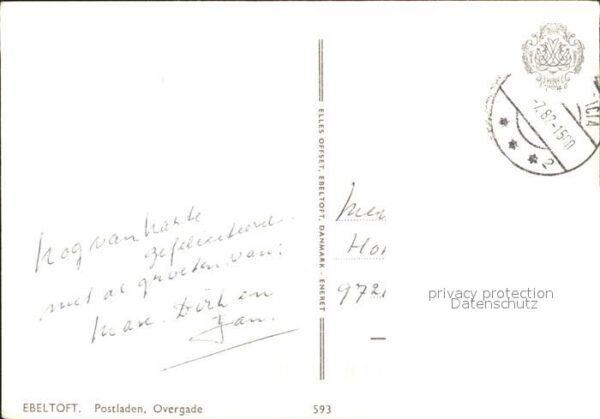 Nog van harte
gefeliciteerd.
met de groeten van:
Dirk en
Jan.
ELLES OFFSET, EBELTOFT, DANMARK - ENERET
-7.82-1500
* * * 2
Ho
972
privacy protection
Datenschutz
EBELTOFT. Postladen, Overgade
593